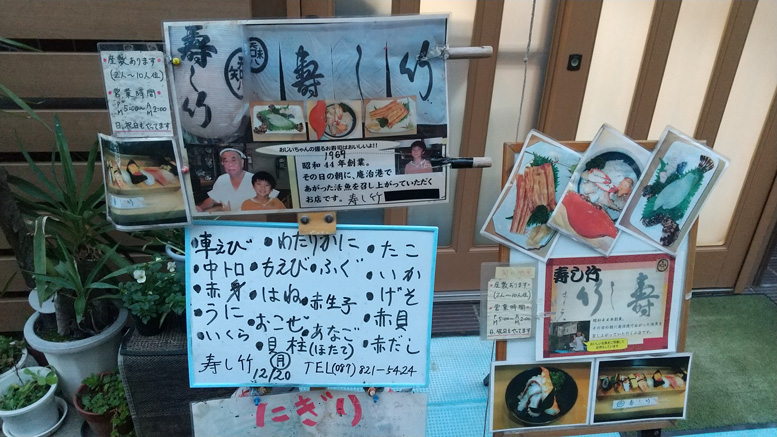 座敷あります
(2人〜10人位)
営業時間
PM5:00〜AM2:00
日、祝日もやってます
寿し竹
寿し竹
おじいちゃんの握るお寿司はおいしいよ!!
1969
昭和44年創業。
その日の朝に、庵治港で
あがった活魚を召し上がっていただく
お店です。寿し竹
・車えび ・わたりがに ・たこ
・中トロ ・もえび ・ふぐ ・いか
・赤身 ・はね ・赤生子 ・げそ
・うに ・おこぜ ・あなご ・赤貝
・いくら ・貝柱(ほたて) ・赤だし
寿し竹 (月) 12/20 TEL(087)821-5424
にぎり
座敷あります
(2人〜10人位)
営業時間
PM5:00〜AM2:00
日、祝日もやってます
寿し竹
寿し竹
昭和44年創業。
寿し竹